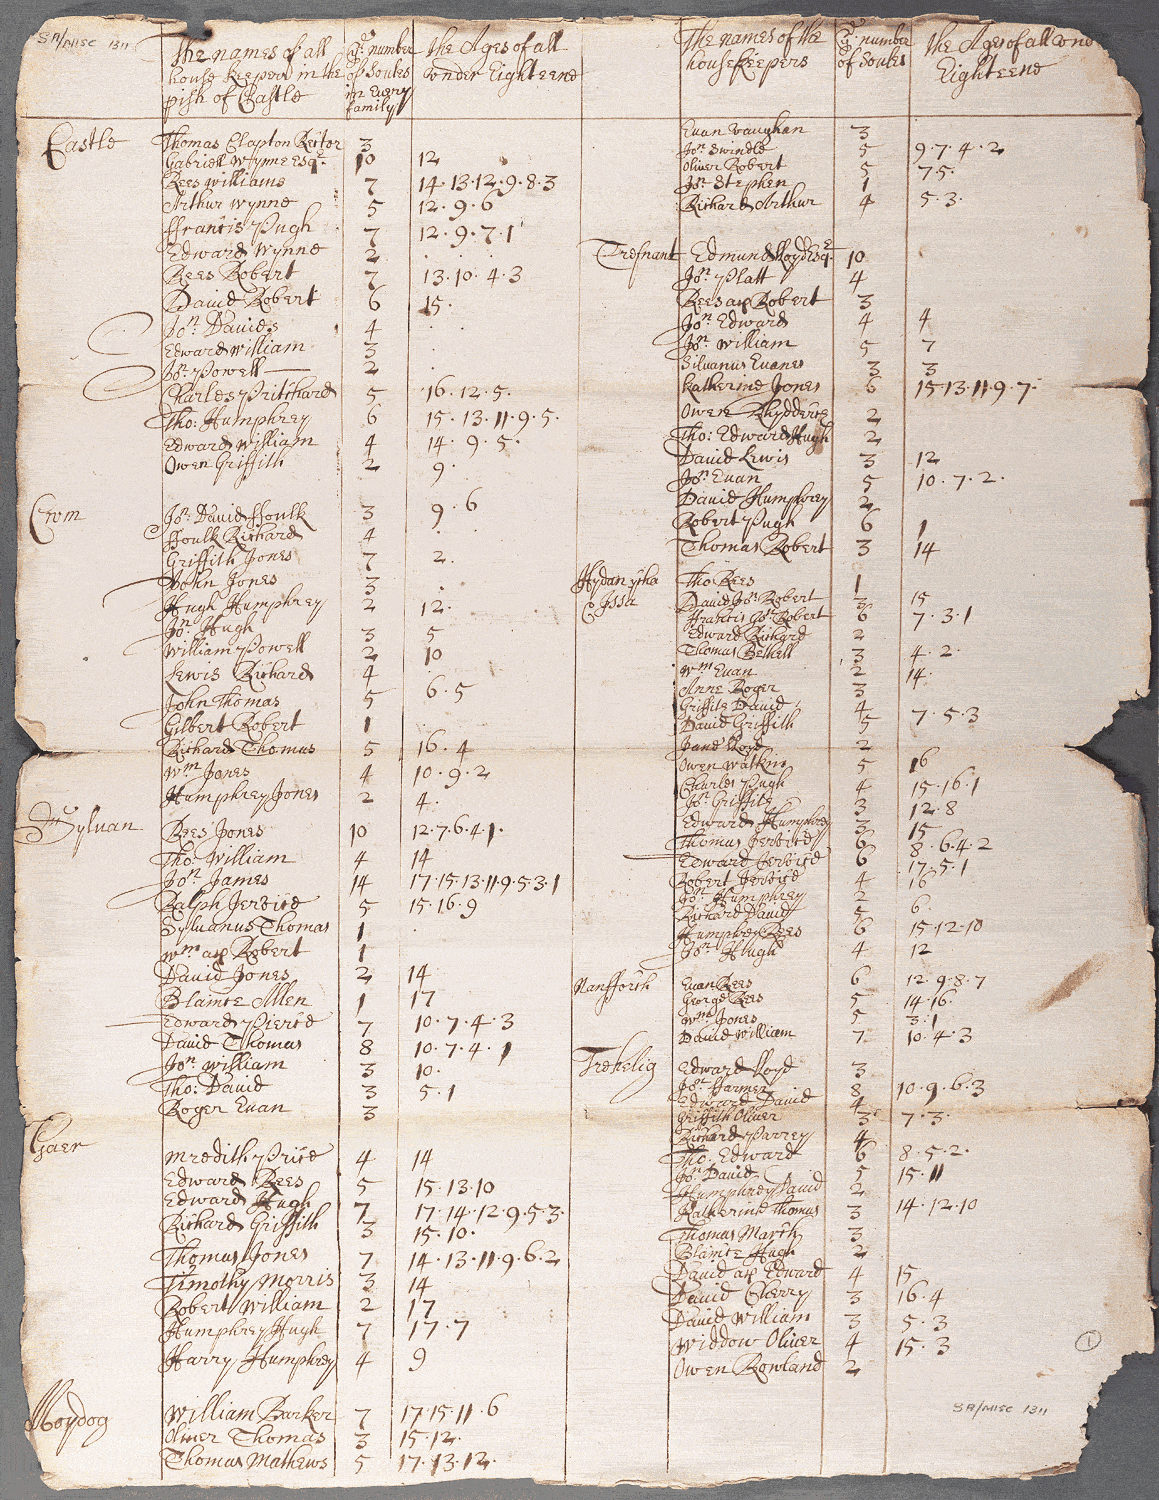 SA/MISC 1311
The names of all house keepers in the pish of Castle
ye number of Soules in Every family
the Ages of all under Eighteene
Castle
Thomas Clapton Rector 3
Gabriell Wynne Esqr. 10 12
Rees Williams 7 14·13·12·9·8·3
Arthur Wynne 5 12·9·6
ffrancis Pugh 7 12·9·7·1
Edward Wynne 2
Rees Robert 7 13·10·4·3
David Robert 6 15·
Jon. Davids 4
Edward William 3
Jon. Powell 2
Charles Pritchard 5 16·12·5·
Tho: Humphrey 6 15·13·11·9·5·
Edward William 4 14·9·5·
Owen Griffith 2 9·
Cwm
Jon. David ffoulk 3 9·6
ffoulk Richard 4
Griffith Jones 7 2·
John Jones 3
Hugh Humphrey 2 12·
Jon. Hugh 3 5
William Powell 2 10
Lewis Richard 4
John Thomas 5 6·5
Gilbert Robert 1
Richard Thomas 5 16·4
Wm Jones 4 10·9·2
Humphrey Jones 2 4·
Sylvan
Rees Jones 10 12·7·6·4·1·
Tho: William 4 14
Jon. James 14 17·15·13·11·9·5·3·1
Ralph Jervice 5 15·16·9
Sylvanus Thomas 1
Wm ap Robert 1
David Jones 2 14
Blaince Allen 1 17
Edward Pierce 7 10·7·4·3
David Thomas 8 10·7·4·1
Jon. William 3 10·
Tho: David 3 5·1
Roger Evan 3
Gaer
Mredith Price 4 14
Edward Rees 5 15·13·10
Edward Hugh 7 17·14·12·9·5·3·
Richard Griffith 3 15·10·
Thomas Jones 7 14·13·11·9·6·2
Timothy Morris 3 14
Robert William 2 17
Humphrey Hugh 7 17·7
Harry Humphrey 4 9
Moydog
William Barker 7 17·15·11·6
Oliver Thomas 3 15·12·
Thomas Mathews 5 17·13·12·
The names of the housekeepers
ye number of Soules
the Ages of all under Eighteene
Evan Vaughan 3
Jon. Swindle 5 9·7·4·2
Oliver Robert 5 7·5·
Jon. Stephen 1
Richard Arthur 4 5·3·
Trefnant
Edmund lloyd Esqr. 10
Jon. Platt 4
Rees ap Robert 3
Jon. Edward 4 4
Jon. William 5 7
Silvanus Evanes 3 3
Katherine Jones 6 15·13·11·9·7·
Owen Rhydderch 2
Tho: Edward Hugh 2
David Lewis 3 12
Jon. Evan 5 10·7·2·
David Humphrey 2
Robert Pugh 6 1
Thomas Robert 3 14
Hydan ycha
& Issa
Tho Rees 1
David Jon. Robert 3 15
ffrancis Jon. Robert 6 7·3·1
Edward Richard 2
Thomas Bethell 3 4·2·
Wm Evan 2 14·
Anne Roger 3
Griffith David 4
David Griffith 5 7·5·3
Jane lloyd 2
Owen Watkin 5 16
Charles Pugh 4 15·16·1
Jon. Griffith 3 12·8
Edward Humphrey 3 15
Thomas Jervice 6 8·6·4·2
Edward Jervice 6 17·5·1
Robert Jervice 4 16
Jon. Humphrey 2
Richard David 5 6·
Humphrey Rees 6 15·12·10
Jon. Hugh 4 12
Nantforth
Evan Rees 6 12·9·8·7
George Rees 5 14·16
Wm. Jones 5 3·1
David William 7 10·4·3
Trehelig
Edward lloyd 3
Jon. Harmer 8 10·9·6·3
Edward David 4
Griffith Oliver 3 7·3·
Richard Parrey 4
Tho: Edward 6 8·5·2·
Jon. David 5 15·11
Humphrey David 2
Katherine Thomas 3 14·12·10
Thomas March 3
Blaince Hugh 2
David ap Edward 4 15
David Cherry 3 16·4
David William 3 5·3
Widdow Oliver 4 15·3
Owen Rowland 2
1
SA/MISC 1311